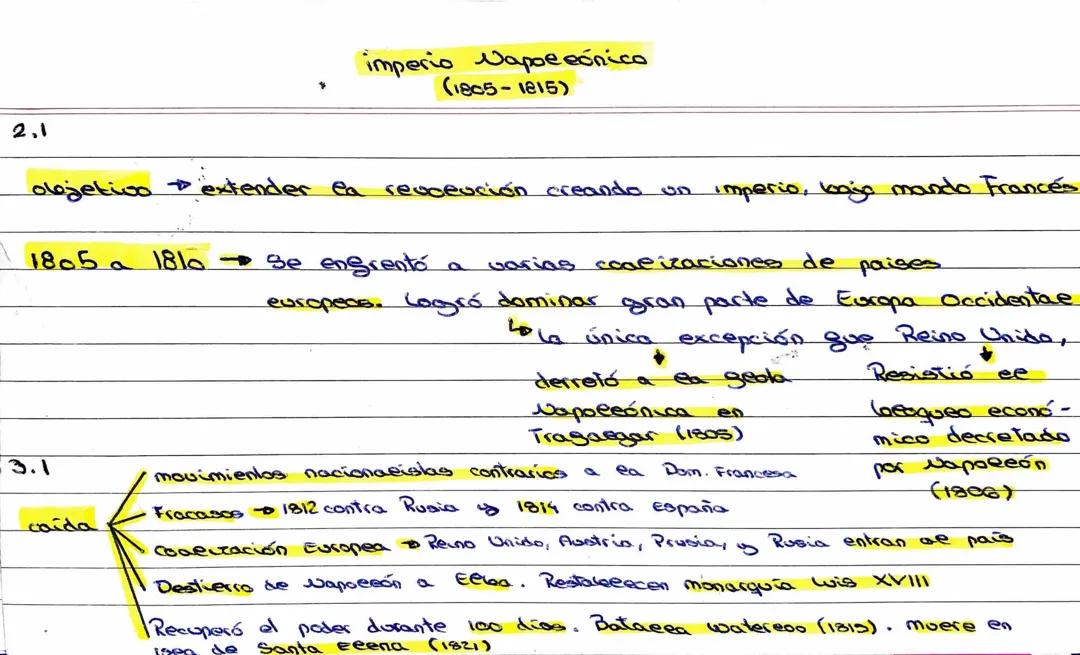 imperio Napoleónico
(1805-1815)
2.1
objetivo → extender la revolución creando un imperio, bajo mando Francés
1805 a 1810 → Se enfrentó a varias coalizaciones de paises
europeos. Logró dominar gran parte de Europa Occidental
↳ la única excepción fue Reino Unido,
derrotó a la flota
Napoleónica en
Trafalgar (1805)
Resistió el
bloqueo econó-
mico decretado
por Napoleón
(1806)
3.1
caída
movimientos nacionalistas contrarios a la Dom. Francesa
Fracasos → 1812 contra Rusia y 1814 contra españa
Coalización Europea → Reino Unido, Austria, Prusia, y Rusia entran al país
Destierro de Napoleón a Elba. Restablecen monarquía Luis XVIII
Recuperó el poder durante 100 días. Batalla waterloo (1815). muere en
isla de Santa Elena (1821)